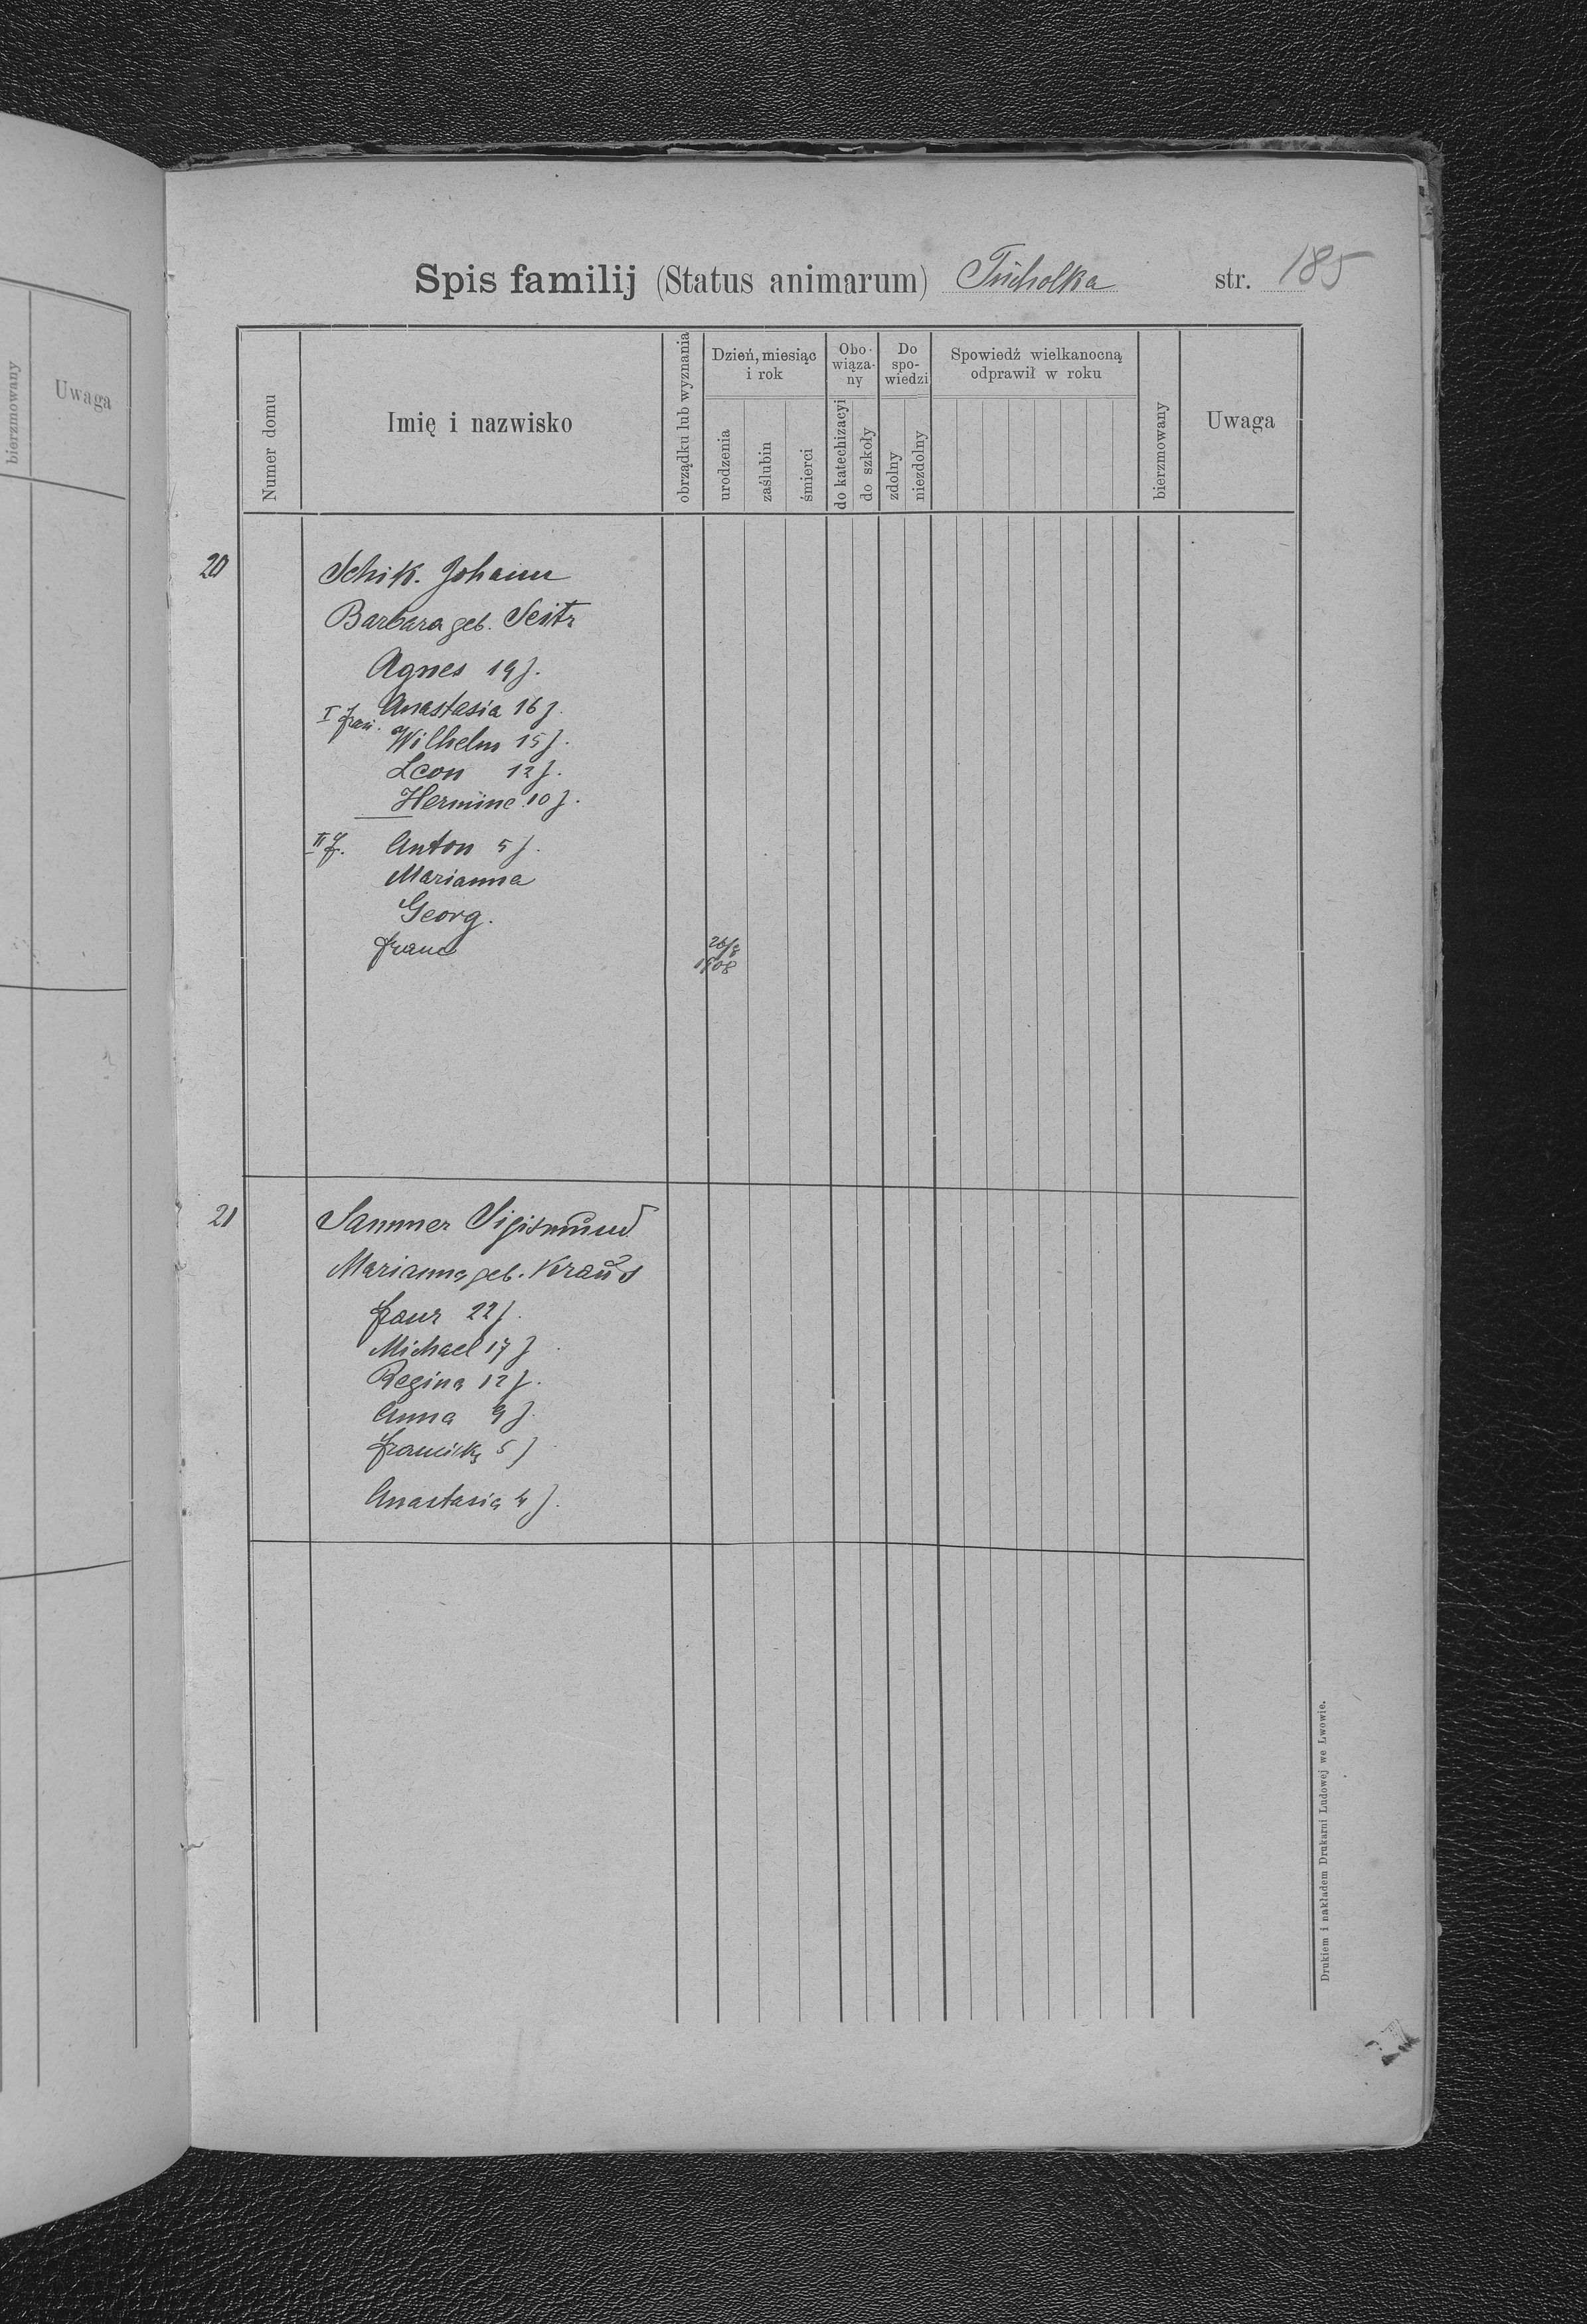 bierzmowany
Uwaga
Spis familij (Status animarum) Tucholka str. 185
Numer domu
Imię i nazwisko
obrządku lub wyznania
Dzień, miesiąc
i rok
urodzenia
zaślubin
śmierci
Obo-
wiąza-
ny
do katechizacyi
do szkoły
Do
spo-
wiedzi
zdolny
niezdolny
Spowiedź wielkanocną
odprawił w roku
bierzmowany
Uwaga
20 Schik. Johann
Barbara geb. Seitz
Agnes 19 j.
I Frau. Anastasia 16 j.
Wilhelm 15 j.
Leon 12 j.
Hermine 10 j.
II F. Anton 5 j.
Marianna
Georg.
Franc 26/8
1908
21 Sammer Sigismund
Marianna geb. Kraus
Franz 22 j.
Michael 17 j
Regina 12 j.
Anna 9 j.
5 j
Anastasia 4 j.
Drukiem i nakładem Drukarni Ludowej we Lwowie.